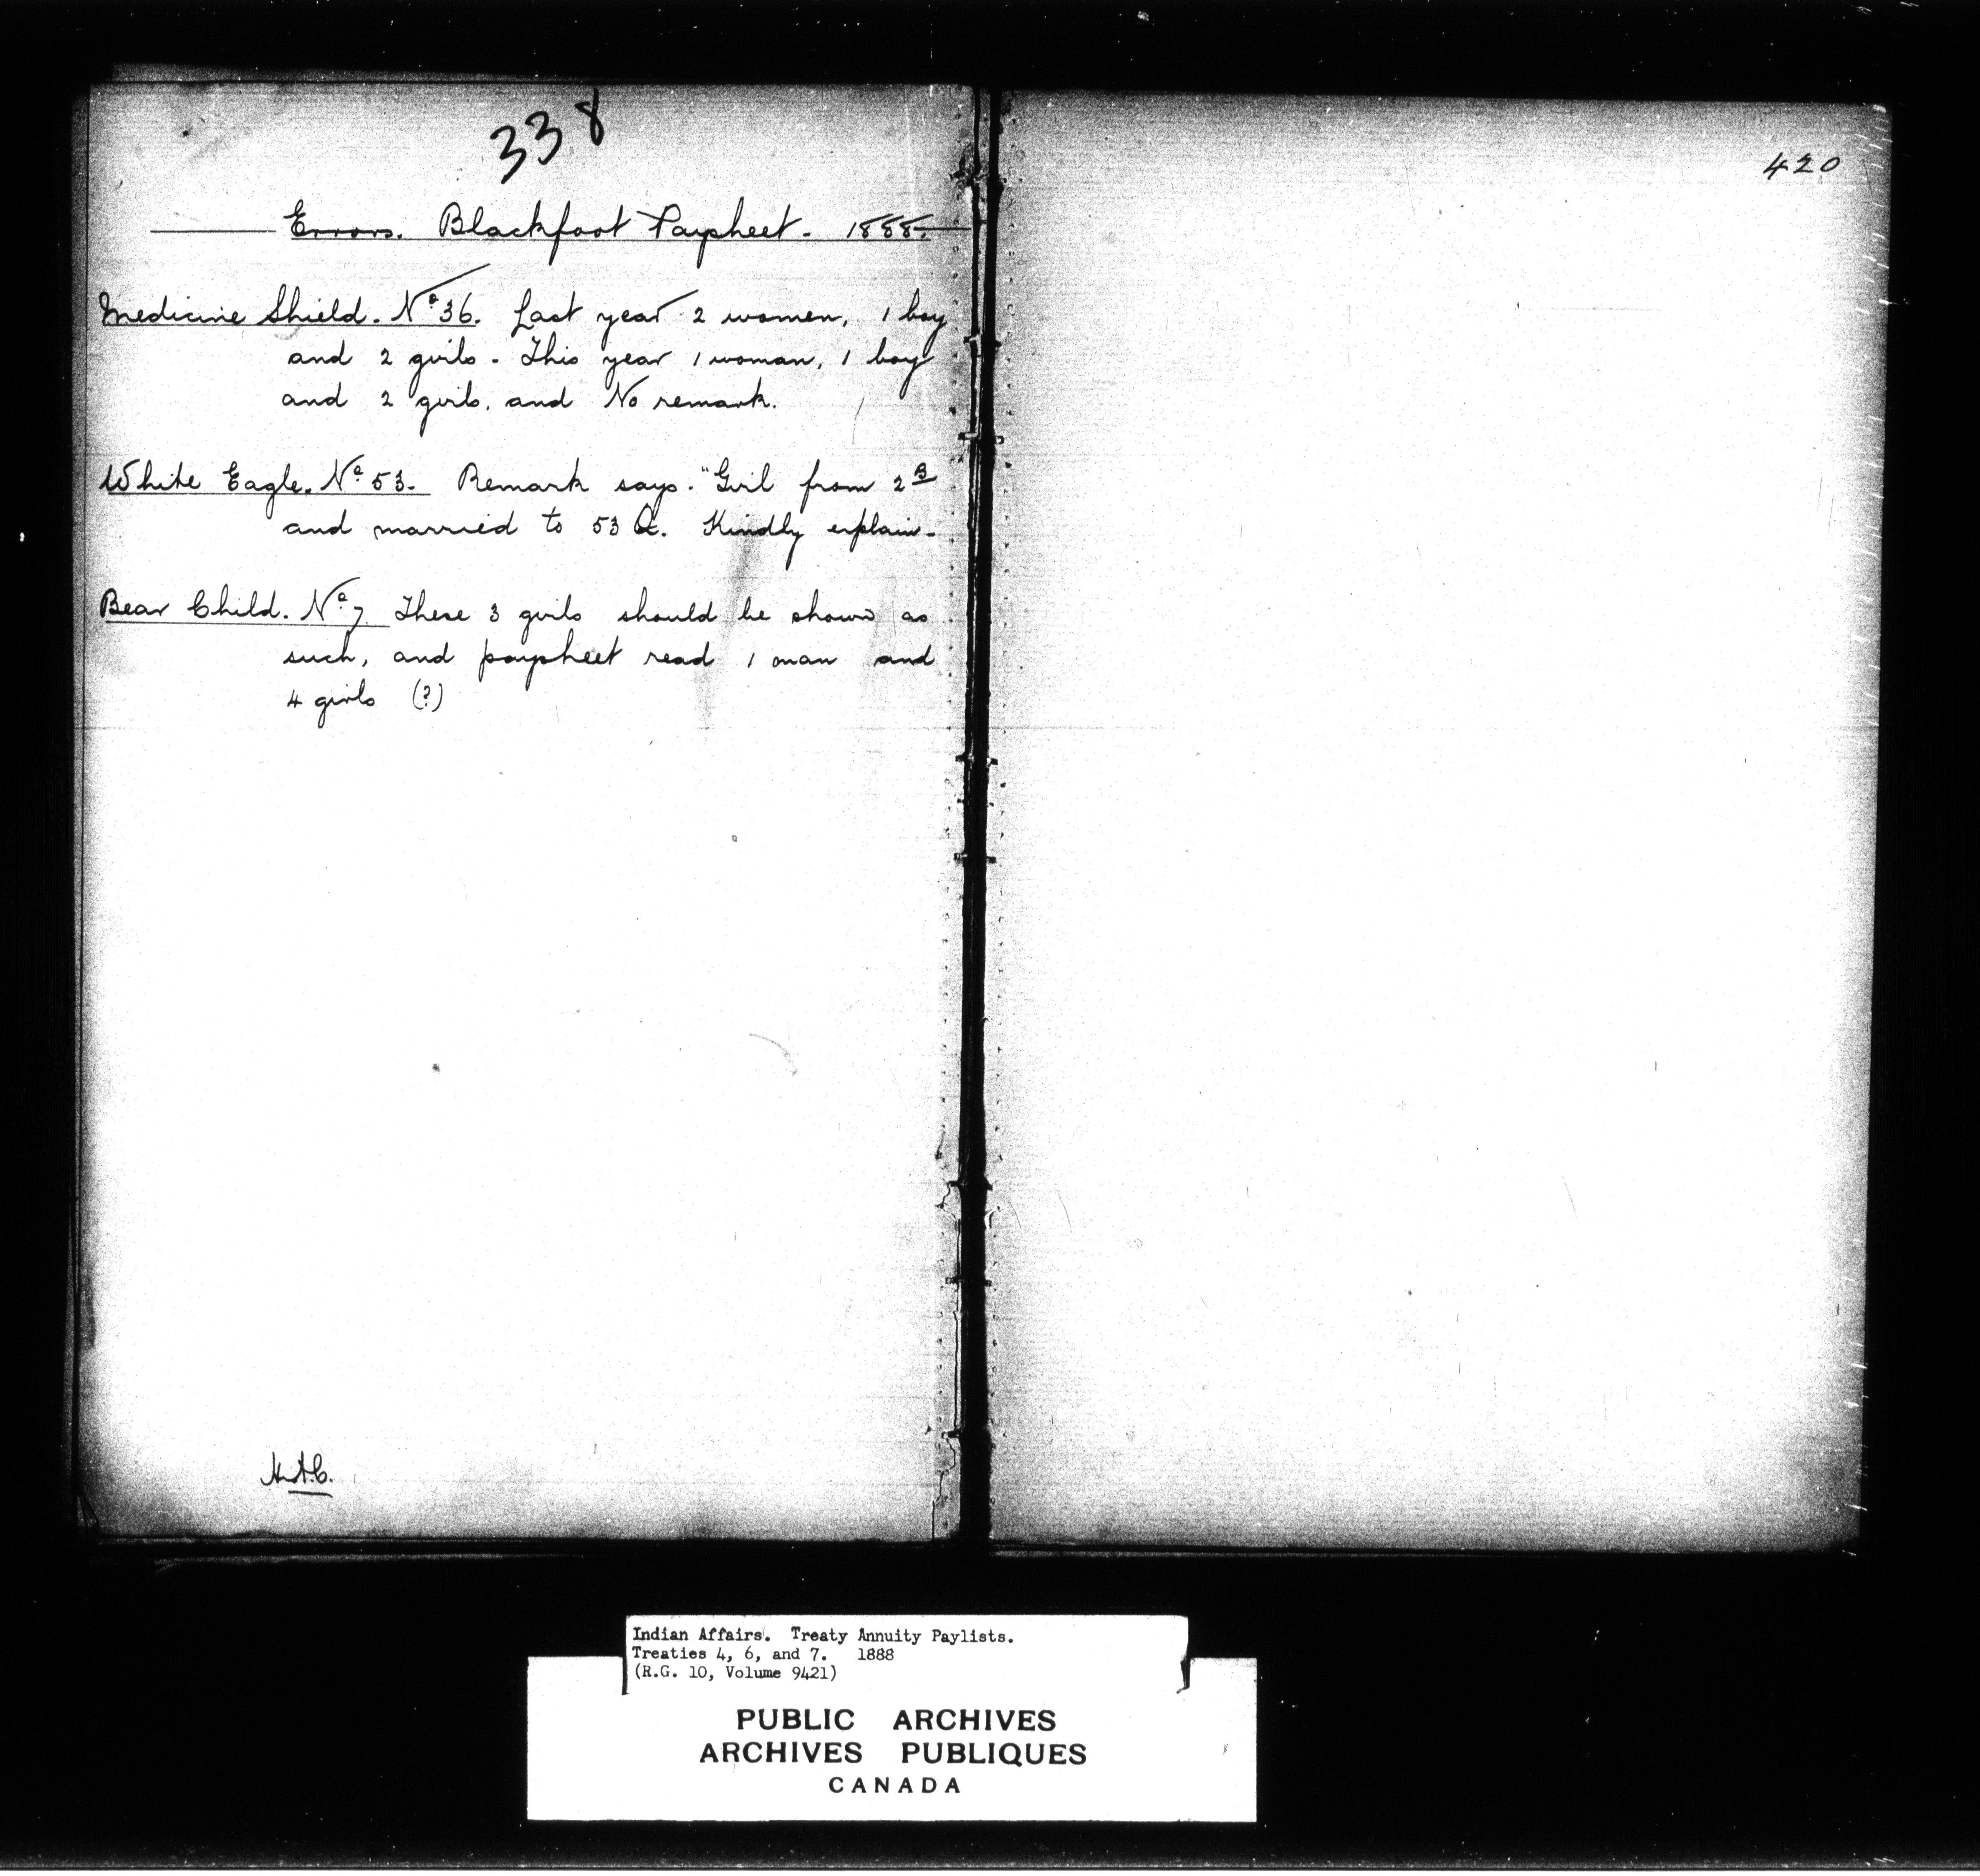 338
Errors. Blackfoot Paysheet. 1888.
Medicine Shield. No 36. Last year 2 women, 1 boy
and 2 girls. This year 1 woman, 1 boy
and 2 girls, and No remark.
White Eagle. No 53. Remark says. "Girl from 2 B
and married to 53 a. Kindly explain.
Bear Child. No 7. These 3 girls should be shown as
such, and paysheet read 1 man and
4 girls (?)
420
Indian Affairs. Treaty Annuity Paylists.
Treaties 4, 6, and 7. 1888
(R.G. 10, Volume 9421)
PUBLIC ARCHIVES
ARCHIVES PUBLIQUES
CANADA